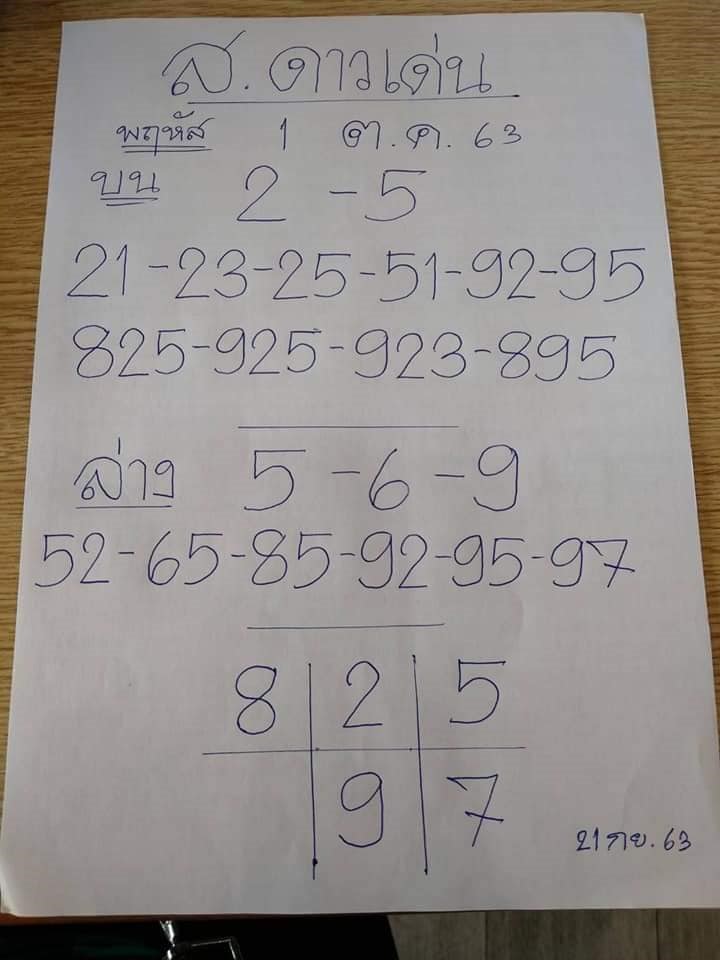 ส. ดาวเด่น
พฤหัส 1 ต.ค. 63
บน 2 - 5
21 - 23 - 25 - 51 - 92 - 95
825 - 925 - 923 - 895
ล่าง 5 - 6 - 9
52 - 65 - 85 - 92 - 95 - 97
8 2 5
9 7
21 กย. 63